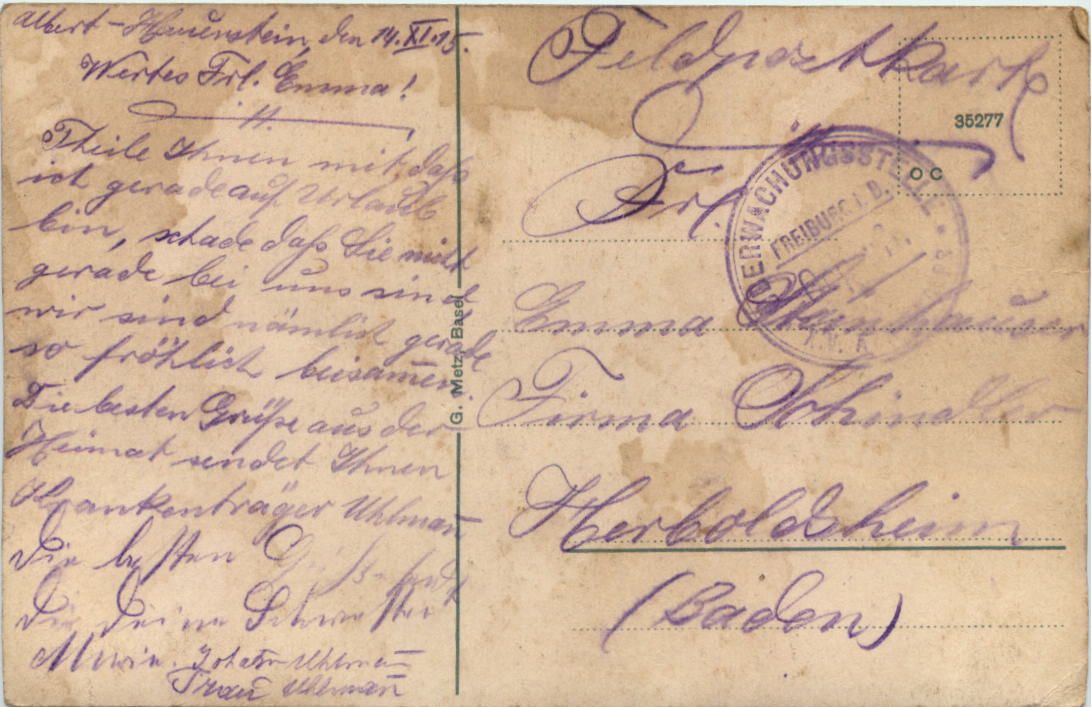 Albert-Hauenstein, den 14.XI.15.
Wertes Frl. Emma!
Theile Ihnen mit, daß
ich gerade auf Urlaub
bin, schade daß Sie nicht
gerade bei uns sind
wir sind nämlich gerade
so fröhlich beisam̅en.
Die besten Grüße aus der
Heimat sendet Ihnen
Krankenträger Uhlman̅
Die besten Grüße sendet
Dir deine Schwester
Johann Uhlman̅
Frau Uhlman̅
G. Metz, Basel
Feldpostkarte
35277
O C
Frl.
ÜBERWACHUNGSSTELLE
FREIBURG i. B.
Emma
Firma Schindler
Herboldsheim
(Baden)